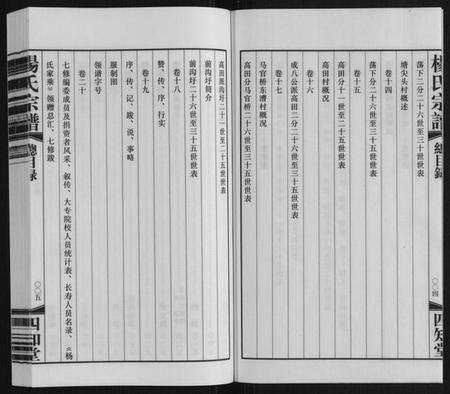 楊氏宗譜
總目録
〇〇四
四知堂
荡下二分二十六世至三十世世表
塘尖头村概述
卷十四
荡下分二十六世至三十五世世表
卷十五
高田分十一世至二十五世世表
高田村概况
卷十六
成八公派高田二分二十六世至三十五世世表
卷十七
马官桥东漕村概况
高田分马官桥二十六世至三十五世世表
楊氏宗譜
總目録
〇〇五
四知堂
高田派前沟圩二十一世至二十五世世表
前沟圩简介
前沟圩二十六世至三十五世世表
卷十八
赞、传、序、行实
卷十九
序、传、记、跋、说、事略
服制图
领谱字号
卷二十
七修编委成员及捐资者风采、叙传、大专院校人员统计表、长寿人员名录、杨
氏家乘领赠总汇、七修跋